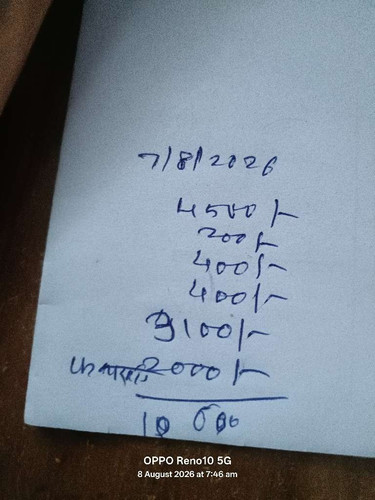 7/8/2026
4500/-
200/-
400/-
400/-
3100/-
2000/-
10 600
OPPO Reno10 5G
8 August 2026 at 7:46 am